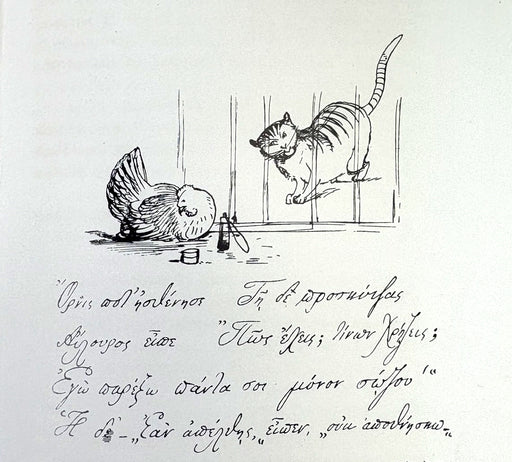 Ὄρνις ποτ' ἠσθένησε Τῇ δὲ προσκύψας
Αἴλουρος εἶπε "Πῶς ἔχεις; τίνων χρῄζεις;
Ἐγὼ παρέξω πάντα σοι μόνον σῴζου"
Ἡ δὲ – „Ἐὰν ἀπέλθῃς„ εἶπεν, „οὐκ ἀποθνήσκω–„